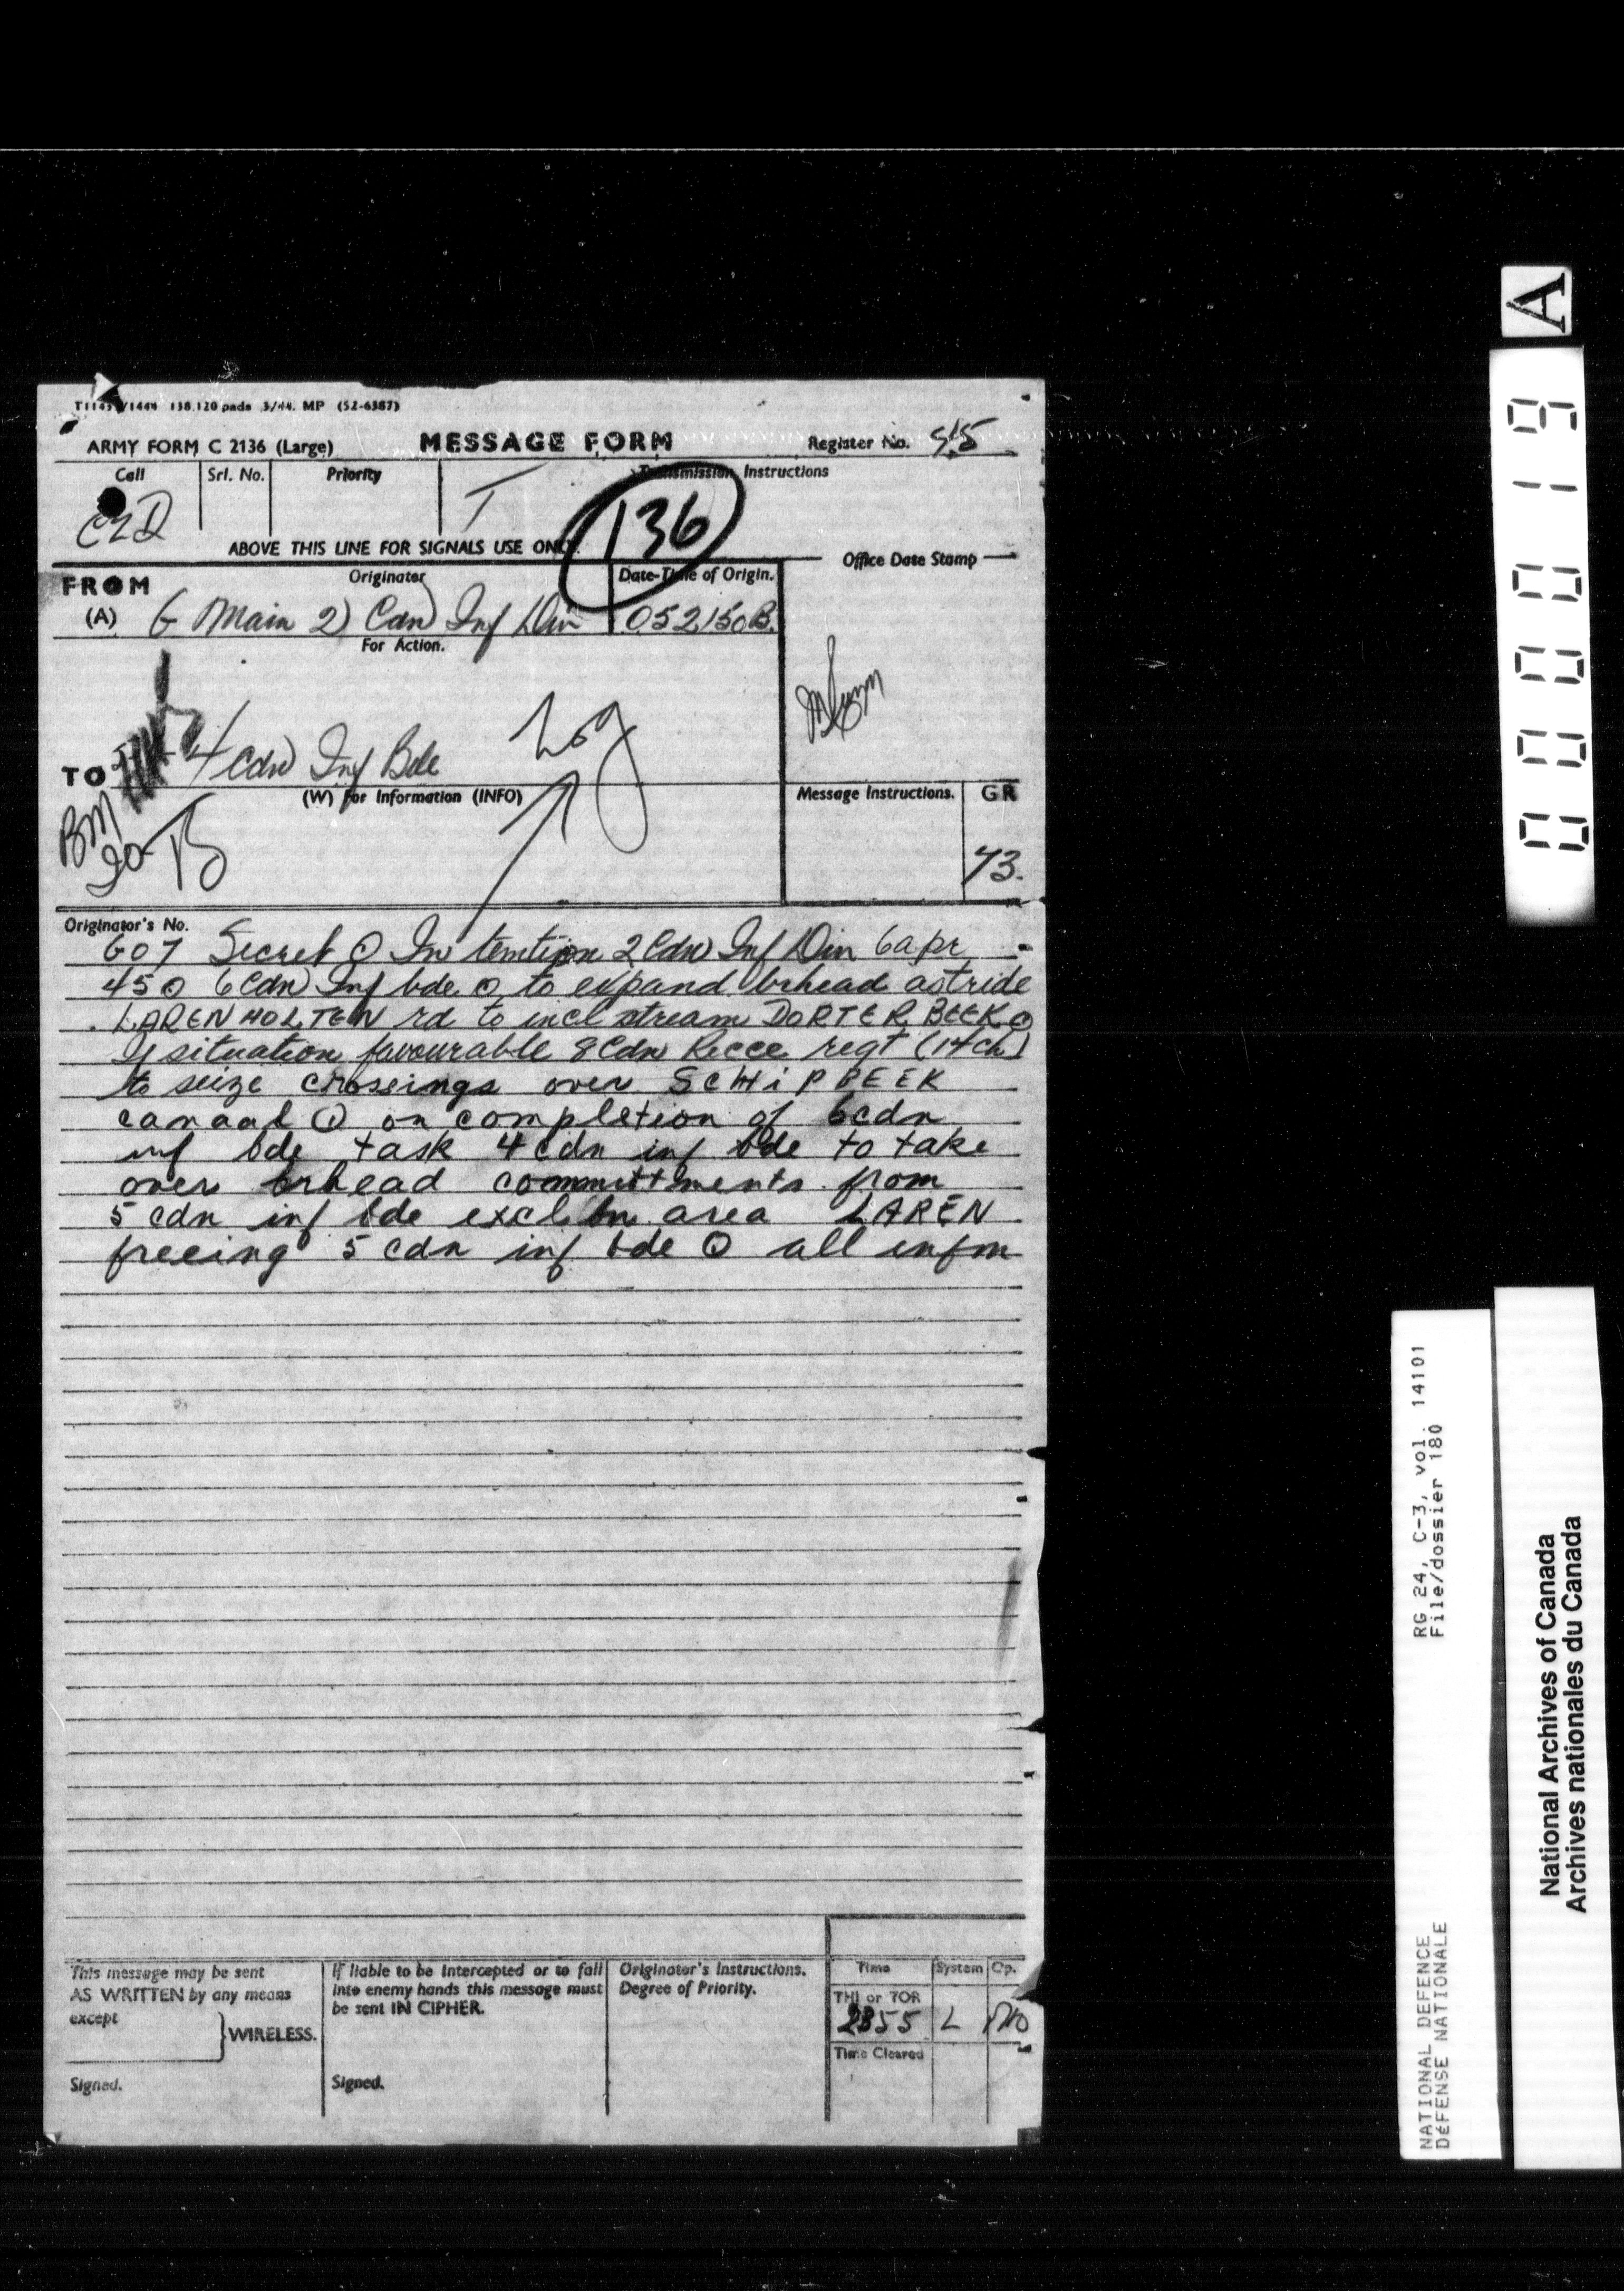 T1145 /1444 138,120 pads 3/44. MP (52-6387)
ARMY FORM C 2136 (Large) MESSAGE FORM Register No.
Call Srl. No. Priority Transmission Instructions
T
136
ABOVE THIS LINE FOR SIGNALS USE ONLY.
Office Date Stamp
FROM Originator Date-Time of Origin.
(A) G Main 2 Cdn Inf Div 052150B.
For Action.
Log
TO 4 Cdn Inf Bde
(W) For Information (INFO) Message Instructions. GR
BM
73.
Originator's No.
G07 Secret ⊙ Intention 2 Cdn Inf Div 6 apr
45 ⊙ 6 Cdn Inf bde ⊙ to expand brhead astride
LAREN HOLTEN rd to incl stream DORTER BEEK ⊙
If situation favourable 8 Cdn Recce regt (14 ch)
to seize crossings over SCHIPBEEK
canaal ⊙ on completion of 6 cdn
inf bde task 4 cdn inf bde to take
over brhead committments from
5 cdn inf bde excl bn area LAREN
freeing 5 cdn inf bde ⊙ all infm
This message may be sent AS WRITTEN by any means except WIRELESS.
Signed.
If liable to be intercepted or to fall into enemy hands this message must be sent IN CIPHER.
Signed.
Originator's Instructions. Degree of Priority.
Time System Op.
THI or TOR
2355 L
Time Cleared
A
0000019
RG 24, C-3, vol. 14101
File/dossier 180
NATIONAL DEFENCE
DÉFENSE NATIONALE
National Archives of Canada
Archives nationales du Canada